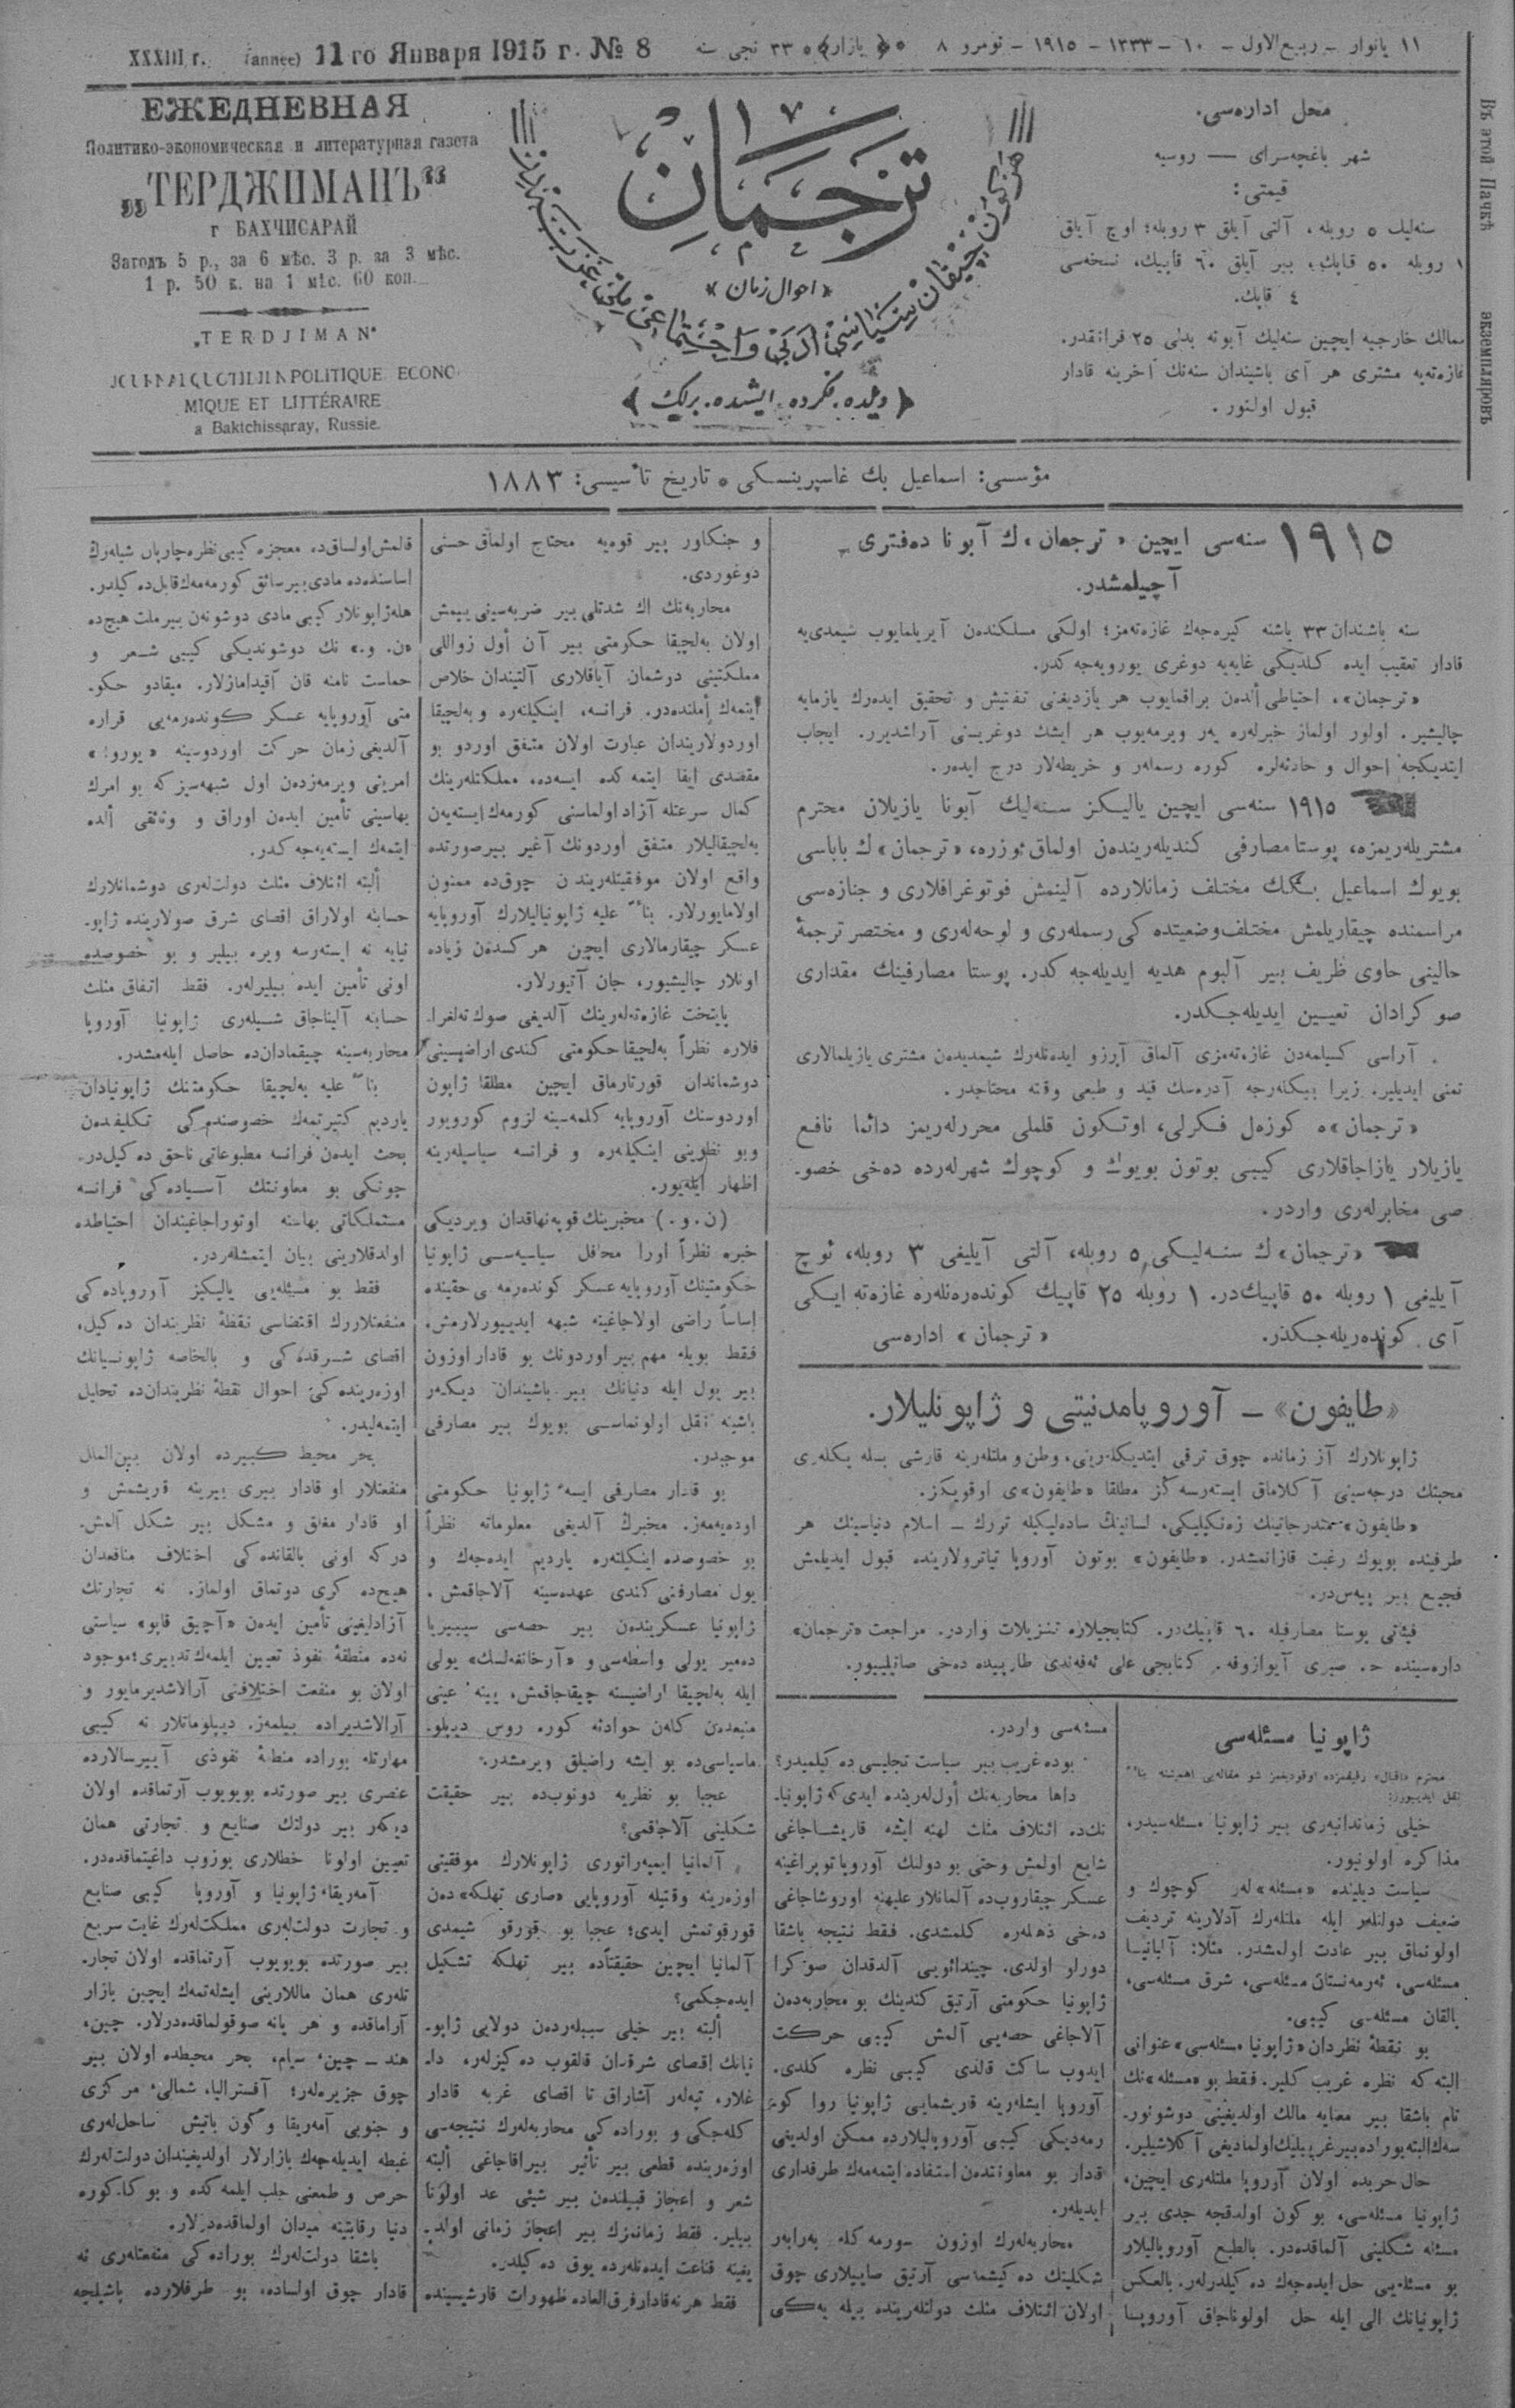 XXXIII г. (année) 11-го Января 1915 г. № 8
١١ يانوار – ربيع الاول – ١٠ – ١٣٣٣ – ١٩١٥ – نومرو ٨ ﴿يازار﴾ ٣٣ نجى سنه
ЕЖЕДНЕВНАЯ
Политико-экономическая и литературная газета
„ТЕРДЖИМАНЪ“
г БАХЧИСАРАЙ
За годъ 5 р., за 6 мѣс. 3 р. за 3 мѣс.
1 р. 50 к. на 1 мѣс. 60 коп.
„TERDJIMAN“
JOURNAL QUOTIDIEN POLITIQUE ECONO
MIQUE ET LITTÉRAIRE
a Baktchissaray, Russie.
ترجمان
«احوال زمان»
﴿ديلده، فكرده، ايشده، برلك﴾
محل اداره‌سى.
شهر باغچه‌سراى — روسيه
قيمتى:
سنه‌ليك ٥ روبله، آلتى آيلق ٣ روبله؛ اوچ آيلق
١ روبله ٥٠ قاپك، بير آيلق ٦٠ قاپيك، نسخه‌سى
٤ قاپك.
ممالك خارجيه ايچين سنه‌ليك آبونه بدلى ٢٥ فرانقدر.
غازه‌ته‌يه مشترى هر آى باشيندان سنه‌نك آخرينه قادار
قبول اولنور.
Въ этой Пачкѣ экземпляровъ
مؤسسى: اسماعيل بك غاسپرينسكى * تاريخ تأسيسى: ١٨٨٣
١٩١٥ سنه‌سى ايچين «ترجمان»ك آبونا ده‌فترى
آچيلمشدر.
سنه باشندان ٣٣ ياشنه كيره‌جه‌ك غازه‌ته‌مز؛ اولكى مسلكندن آيريلمايوب شيمدى‌يه
قادار تعقيب ايده كلديكى غايه‌يه دوغرى يورويه‌جه‌كدر.
«ترجمان»، احتياطى ألدن براقمايوب هر يازديغنى تفتيش و تحقيق ايده‌رك يازمايه
چاليشير. اولور اولماز خبرله‌ره يه‌ر ويرمه‌يوب هر ايشك دوغريسنى آراشديرر. ايجاب
ايتديكجه احوال و حادثه‌لره كوره رسمله‌ر و خريطه‌لار درج ايده‌ر.
١٩١٥ سنه‌سى ايچين ياليكز سنه‌ليك آبونا يازيلان محترم
مشتريله‌ريمزه، پوستا مصارفى كنديله‌ريندەن اولماق ئوزره، «ترجمان»ك باباسى
بويوك اسماعيل بكك مختلف زمانلارده آلينمش فوتوغرافلارى و جنازه‌سى
مراسمنده چيقاريلمش مختلف وضعيتده كى رسمله‌رى و لوحه‌له‌رى و مختصر ترجمۀ
حالينى حاوى ظريف بير آلبوم هديه ايديله‌جه‌كدر. پوستا مصارفينك مقدارى
صوكرادان تعيين ايديله‌جكدر.
آراسى كسيلمه‌دن غازه‌ته‌مزى آلماق آرزو ايده‌نله‌رك شيمديدن مشترى يازيلمالارى
تمنى ايديلير. زيرا بيكله‌رجه آدره‌سك قيد و طبعى وقته محتاجدر.
«ترجمان»ه كوزه‌ل فكرلى، اوتكون قلملى محررله‌ريمز دائما نافع
يازيلار يازاجاقلارى كيبى بوتون بويوك و كوچوك شهرله‌رده ده‌خى خصو-
صى مخابرله‌رى واردر.
«ترجمان»ك سنه‌ليكى ٥ روبله، آلتى آيليغى ٣ روبله، ئوچ
آيليغى ١ روبله ٥٠ قاپيك‌در. ١ روبله ٢٥ قاپيك كونده‌ره‌نله‌ره غازه‌ته ايكى
آى كونده‌ريله‌جكدر. «ترجمان» اداره‌سى
«طايفون» – آوروپا مدنيتى و ژاپونليلار.
ژاپونلارك آز زمانده چوق ترقى ايتديكله‌رينى، وطن و ملتله‌رينه قارشى بسله‌يكله‌رى
محبتك درجه‌سينى آكلاماق ايسته‌رسه‌كز مطلقا «طايفون»ى اوقويكز.
«طايفون» مندرجاتينك زه‌نكيليكى، لسانينك ساده‌ليكيله تورك – اسلام دنياسينك هر
طرفينده بويوك رغبت قازانمشدر. «طايفون» بوتون آوروپا تياترولارينده قبول ايديلمش
فجيع بير پيه‌س‌در.
فيئاتى پوستا مصارفيله ٦٠ قاپيك‌در. كتابجيلاره تنزيلات واردر. مراجعت «ترجمان»
داره‌سينده ح. صبرى آيوازوفه. كتابجى على ئه‌فه‌ندى طارپيده ده‌خى صاتيلييور.
ژاپونيا مسئله‌سى
محترم «اقبال» رفيقمزده اوقوديغمز شو مقاله‌يى اهميتنه بناءً
نقل ايدييورز:
خيلى زماندانبه‌رى بير ژاپونيا مسئله‌سيدر،
مذاكره اولونيور.
سياست ديلينده «مسئله»له‌ر كوچوك و
ضعيف دولتلەر ايله ملتله‌رك آدلارينه ترديف
اولونماق بير عادت اولمشدر. مثلا: آلبانيا
مسئله‌سى، ئه‌رمه‌نستان مسئله‌سى، شرق مسئله‌سى،
بالقان مسئله‌سى كيبى.
بو نقطۀ نظردان «ژاپونيا مسئله‌سى» عنوانى
البته كه نظره غريب كلير. فقط بو «مسئله»نك
تام باشقا بير معنايه مالك اولديغينى دوشونور-
سه‌ك البته بوراده بير غريبليك اولماديغى آكلاشيلير.
حال حربده اولان آوروپا ملتله‌رى ايچين،
ژاپونيا مسئله‌سى، بو كون اولدقجه جدى بير
مسئله شكلينى آلماقده‌در. بالطبع آوروپاليلار
بو مسئله‌يى حل ايده‌جه‌ك ده‌كيلدرله‌ر. بالعكس
ژاپونيانك الى ايله حل اولوناجاق آوروپا
مسئه‌سى واردر.
بوده غريب بير سياست تجليسى ده‌كيلميدر؟
داها محاربه‌نك أول‌له‌رينده ايدى كه ژاپونيا-
نك‌ده ائتلاف مثلث لهنه ايشه قاريشاجاغى
شايع اولمش وحتى بو دولتك آوروپا توپراغينه
عسكر چيقاروب‌ده آلمانلار عليهنه اوروشاجاغى
ده‌خى ذهله‌ره كلمشدى. فقط نتيجه باشقا
دورلو اولدى. چيندائويى آلدقدان صوكرا
ژاپونيا حكومتى آرتيق كندينك بو محاربه‌دن
آلاجاغى حصه‌يى آلمش كيبى حركت
ايدوب ساكت قالدى كيبى نظره كلدى.
آوروپا ايشله‌رينه قاريشمايى ژاپونيا روا كو-
رمه‌ديكى كيبى آوروپاليلارده ممكن اولديغى
قدار بو معاونتدن استفاده ايتمه‌مه‌ك طرفدارى
ايديله‌ر.
محاربه‌له‌رك اوزون سورمه‌كله به‌رابه‌ر
شكلينك ده‌كيشمه‌سى آرتيق صايپلارى چوق
اولان ائتلاف مثلث دولتله‌رينده بيله به‌لكى
و جنكاور بير قوه‌يه محتاج اولماق حسنى
دوغوردى.
محاربه‌نك اك شدتلى بير ضربه‌سينى ييمش
اولان به‌لچيقا حكومتى بير آن أول زواللى
مملكتينى دوشمان آياقلارى آلتيندان خلاص
ايتمه‌ك أملنده‌در. فرانسه، اينكيلته‌ره وبه‌لچيقا
اوردولاريندان عبارت اولان متفق اوردو بو
مقصدى ايفا ايتمه‌كده ايسه‌ده، مملكتله‌رينك
كمال سرعتله آزاد اولماسنى كورمه‌ك ايسته‌يه‌ن
به‌لچيقاليلار متفق اوردونك آغير بير صورتده
واقع اولان موفقيتله‌ريندن چوق‌ده ممنون
اولامايورلار. بناءً عليه ژاپونياليلارك آوروپايه
عسكر چيقارمالارى ايچين هر كسدن زياده
اونلار چاليشيور، جان آتيورلار.
پايتخت غازه‌ته‌له‌رينك آلديغى صوك ته‌لغرا-
فلاره نظراً به‌لچيقا حكومتى كندى اراضيسينى
دوشماندان قورتارماق ايچين مطلقا ژاپون
اوردوسنك آوروپايه كلمه‌سينه لزوم كورويور
وبو نظرينى اينكيلته‌ره و فرانسه سياسيله‌رينه
اظهار ايله‌يور.
(ن. و.) مخبرينك قوپه‌نهاقدان ويرديكى
خبره نظراً اورا محافل سياسيه‌سى ژاپونيا
حكومتينك آوروپايه عسكر كونده‌رمه‌سى حقينده
اساساً راضى اولاجاغينه شبهه ايدييورلارمش.
فقط بويله مهم بير اوردونك بو قادار اوزون
بير يول ايله دنيانك بير باشيندان ديكه‌ر
باشينه نقل اولونماسى بويوك بير مصارفى
موجبدر.
بو قادار مصارفى ايسه ژاپونيا حكومتى
اوده‌يه‌مه‌ز. مخبرك آلديغى معلوماته نظراً
بو خصوصده اينكيلته‌ره يارديم ايده‌جه‌ك و
يول مصارفنى كندى عهده‌سينه آلاجاقمش.
ژاپونيا عسكريندن بير حصه‌سى سيبيريا
ده‌مير يولى واسطه‌سى و «آرخانغه‌لسك» يولى
ايله به‌لچيقا اراضيسنه چيقاجاقمش، يينه عينى
منبعدن كلەن حوادثه كوره روس ديپلو-
ماسياسى‌ده بو ايشه راضيلق ويرمشدر.
عجبا بو نظريه دونوب‌ده بير حقيقت
شكلينى آلاجاقمى؟
آلمانيا ايمپه‌راتورى ژاپونلارك موفقيتى
اوزه‌رينه وقتيله آوروپايى «صارى تهلكه»دن
قورقوتمش ايدى؛ عجبا بو قورقو شيمدى
آلمانيا ايچين حقيقتاًده بير تهلكه تشكيل
ايده‌جكمى؟
ألبته بير خيلى سببله‌ردن دولايى ژاپو-
نيانك اقصاى شرقدان قالقوب ده‌كيزله‌ر، دا-
غلار، تپه‌له‌ر آشاراق تا اقصاى غربه قادار
كله‌جكى و بوراده كى محاربه‌له‌رك نتيجه‌سى
اوزه‌رينده قطعى بير تأثير بيراقاجاغى ألبته
شعر و اعجاز قبيلندن بير شيئى عد اولونا
بيلير. فقط زمانمزك بير اعجاز زمانى اولد-
يغينه قناعت ايده‌نله‌رده يوق ده‌كيلدر.
فقط هر نه‌قادار فوق العاده ظهورات قارشيسينده
قالمش اولساق‌ده معجزه كيبى نظره چارپان شيله‌رك
اساسنده‌ده مادى بير سائق كورمه‌مه‌ك قابل ده‌كيلدر.
هله ژاپونلار كيبى مادى دوشونه‌ن بير ملت هيچ‌ده
«ن. و.»نك دوشونديكى كيبى شعر و
حماست نامنه قان آقيدامازلار. ميقادو حكو-
متى آوروپايه عسكر كونده‌رمه‌يى قراره
آلديغى زمان حركت اوردوسينه «يورو!»
امرينى ويرمه‌زدن اول شبهه‌سيز كه بو امرك
بهاسينى تأمين ايده‌ن اوراق و وثائقى ألده
ايتمه‌ك ايسته‌يه‌جه‌كدر.
ألبته ائتلاف مثلث دولت‌له‌رى دوشمانلارك
حسابنه اولاراق اقصاى شرق صولارينده ژاپو-
نيايه نه ايسته‌رسه ويره بيلير و بو خصوصده
اونى تأمين ايده بيليرله‌ر. فقط اتفاق مثلث
حسابنه آليناجاق شيله‌رى ژاپونيا آوروپا
محاربه‌سينه چيقمادان‌ده حاصل ايله‌مشدر.
بناءً عليه به‌لچيقا حكومتنك ژاپونيادان
يارديم كتيرتمه‌ك خصوصنده‌كى تكليفدن
بحث ايده‌ن فرانسه مطبوعاتى ناحق ده‌كيل‌در-
چونكى بو معاونتك آسياده‌كى فرانسه
مستملكاتى بهاسنه اوتوراجاغيندان احتياطده
اولدقلارينى بيان ايتمشله‌ردر.
فقط بو مسئله‌يى ياليكيز آوروپاده كى
منفعتلارك اقتضاسى نقطۀ نظريندان ده‌كيل،
اقصاى شرقده‌كى و بالخاصه ژاپونيانك
اوزه‌رينده كى احوال نقطۀ نظريندان‌ده تحليل
ايتمه‌ليدر.
بحر محيط كبيرده اولان بين‌الملل
منفعتلار او قادار بيرى بيرينه قاريشمش و
او قادار مغلق و مشكل بير شكل آلمش-
دركه اونى بالقانده‌كى اختلاف منافعدان
هيچ‌ده كرى دوتماق اولماز. نه تجارتك
آزادليغينى تأمين ايده‌ن «آچيق قاپو» سياستى
نه‌ده منطقۀ نفوذ تعيين ايله‌مه‌ك تدبيرى؛ موجود
اولان بو منفعت اختلافنى آرالاشديرمايور و
آرالاشديراده بيلمه‌ز. ديپلوماتلار نه كيبى
مهارتله بوراده منطقۀ نفوذى آييرسالارده
عنصرى بير صورتده بويويوب آرتماقده اولان
ديكه‌ر بير دولتك صنايع و تجارتى همان
تعيين اولونا خطلارى بوزوب داغيتماقده‌در.
آمه‌ريقا، ژاپونيا و آوروپا كيبى صنايع
و تجارت دولت‌له‌رى مملكت‌له‌رك غايت سريع
بير صورتده بويويوب آرتماقده اولان تجار-
تله‌رى همان ماللارينى ايشله‌تمه‌ك ايچين بازار
آراماقده و هر يانه صوقولماقده‌درلار. چين،
هند – چين، سيام، بحر محيطده اولان بير
چوق جزيره‌له‌ر؛ آفستراليا، شمالى، مركزى
و جنوبى آمه‌ريقا و كون باتيش ساحل‌له‌رى
غبطه ايديله‌جه‌ك بازارلار اولديغيندان دولت‌له‌رك
حرص و طمعنى جلب ايله‌مه‌كده و بو كا كوره
دنيا رقابتينه ميدان اولماقده‌درلار.
باشقا دولت‌له‌رك بوراده كى منفعتله‌رى نه
قادار چوق اولساده، بو طرفلارده باشليجه